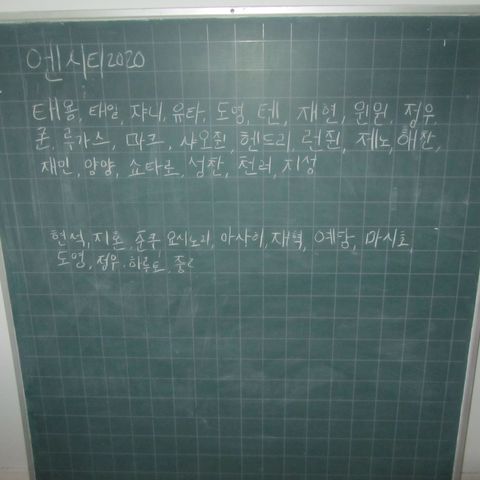 엔시티2020
태용, 태일, 쟈니, 유타, 도영, 텐, 재현, 윈윈, 정우,
쿤, 루카스, 마크, 샤오쥔, 헨드리, 런쥔, 제노, 해찬,
재민, 양양, 쇼타로, 성찬, 천러, 지성
현석, 지훈, 준규 요시노리, 아사히, 재혁, 예담, 마시호,
도영, 정우, 하루토,